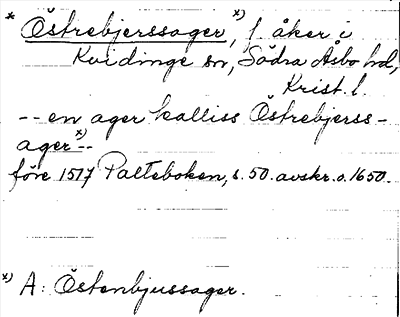 * Östrebjerssager,*) f. åker i
Kvidinge sn, Södra Åsbo hd,
Krist. l.
-- en ager kalliss Östrebjerss-
ager*)--
före 1517 Palteboken, s. 50. avskr. o. 1650.
*) A: Östenbjussager.